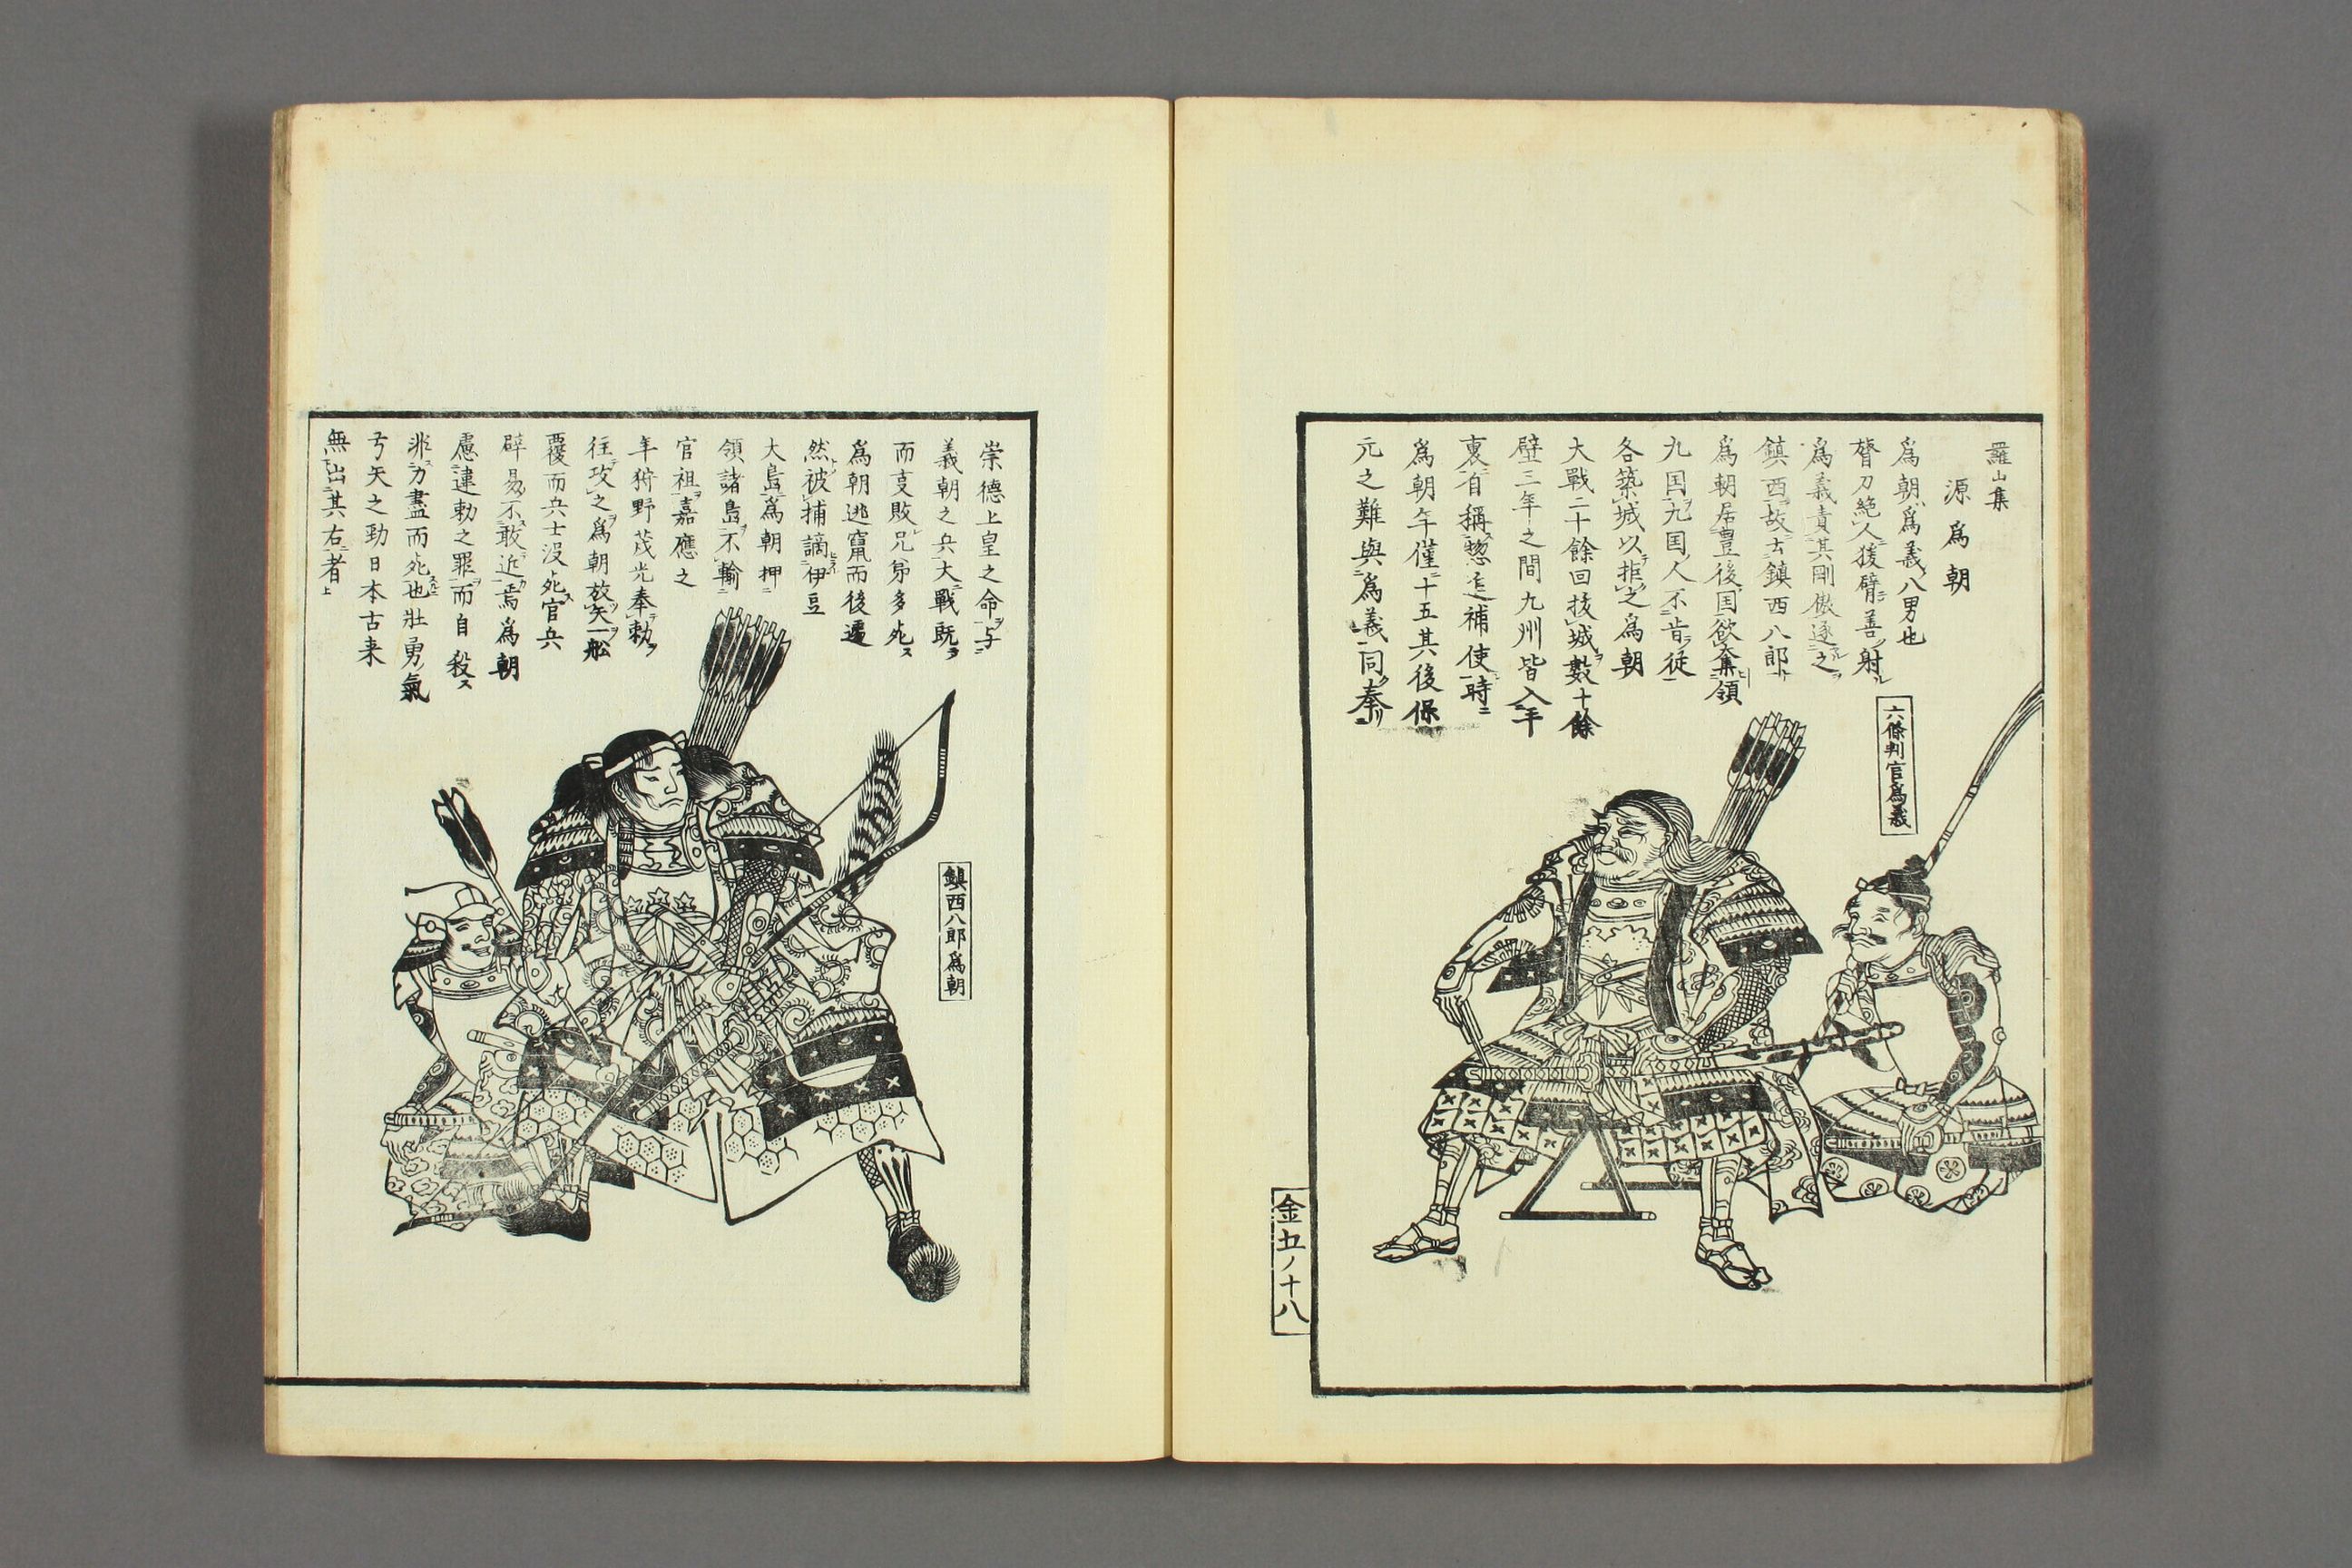 羅山集
源爲朝
爲朝爲義八男也
膂力絶人猨臂善射
爲義責其剛傲逐之
鎮西故士鎮西八郎
爲朝居豊後国欲奪領
九国九国人不肯從
各築城以拒之爲朝
大戰二十餘回抜城數十餘
壁三年之間九州皆入手
裏自稱惣追補使時
爲朝年僅十五其後保
元之難與爲義同奉
六條判官爲義
金五ノ十八
崇德上皇之命与
義朝之兵大戰既
而軍敗兄弟多死
爲朝逃竄而後遂
然被捕謫伊豆
大島爲朝押
領諸島不輸
官祖嘉應之
年狩野茂光奉勅
往攻之爲朝放矢一舩
覆而兵士没死官兵
辟易不敢近焉爲朝
慮違勅之罪而自殺
非力盡而死也壯勇氣
弓矢之勁日本古来
無出其右者
鎮西八郎爲朝